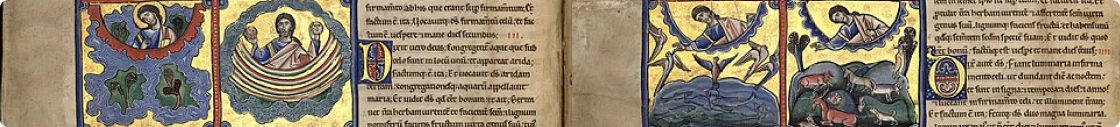 firmamto ab his que erant sup firmamtum. Et
factum ē ita. Vocauitq; ds firmamtū celū. et fac
tum ē uespere ⁊ mane dies secundus; III.
Dixit uero deus; Congregent aque que sub
celo sunt in locū unū. et appareat arida;
factumq; ē ita; Et uocauit ds aridam
terram. congregationesq; aquarū appellauit
maria; Et uidit ds qd eēt bonum. et ait; Germi
net tra herbam uirentem et facientē semen. lignum
pomiferū faciens fructum iuxta genus suū. cui
protulit tra herbam uirentē et afferentē semen iuxta
genus suū. lignumq; faciens fructū. et habens
qdq; semtem sedm speciem suam; Et uidit ds qd
eēt bonū. factūq; est uespe et mane dies tcius; IIII
Dixit autē ds; Fiant luminaria infirma
mento celi. ut diuidant diem ac noctem.
et sint in signa ⁊ tempora ⁊ dies ⁊ annos.
ut luceant infirmamto celi. et illuminent tram;
Et factum ē ita; Fecitq; ds duo magna luminaria.